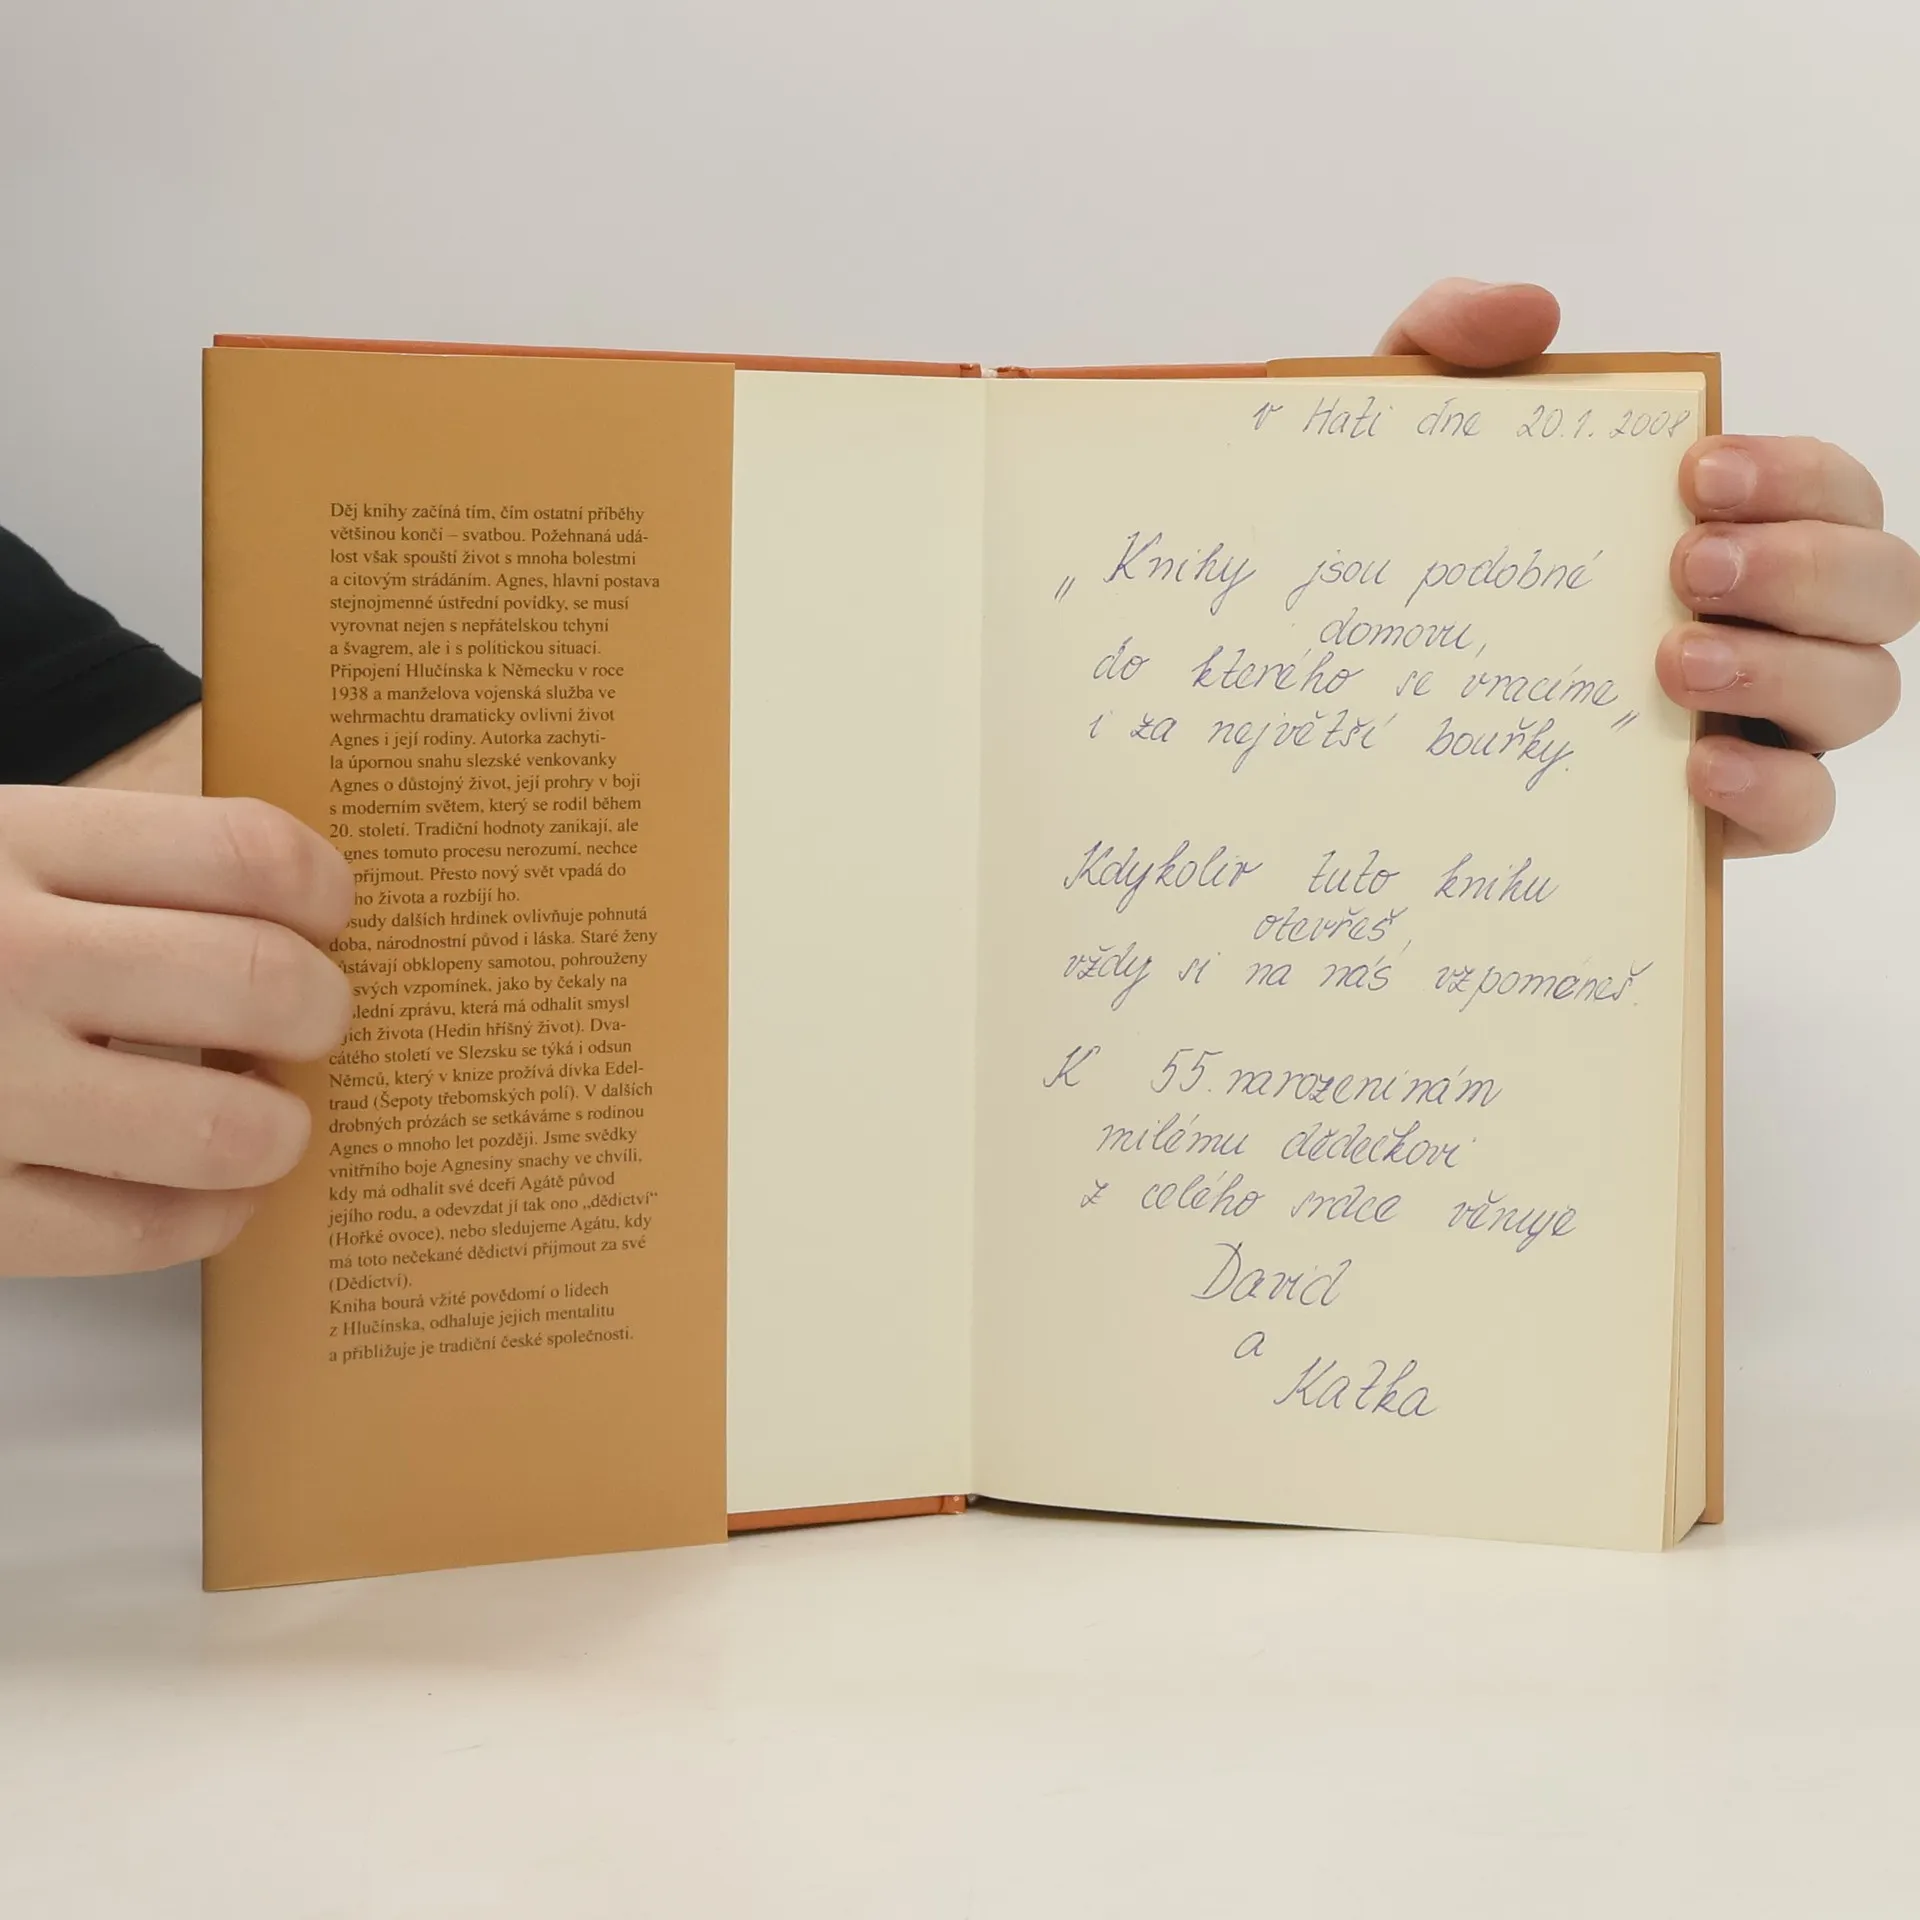 Děj knihy začíná tím, čím ostatní příběhy
většinou končí – svatbou. Požehnaná udá-
lost však spouští život s mnoha bolestmi
a citovým strádáním. Agnes, hlavní postava
stejnojmenné ústřední povídky, se musí
vyrovnat nejen s nepřátelskou tchyní
a švagrem, ale i s politickou situací.
Připojení Hlučínska k Německu v roce
1938 a manželova vojenská služba ve
wehrmachtu dramaticky ovlivní život
Agnes i její rodiny. Autorka zachyti-
la úpornou snahu slezské venkovanky
Agnes o důstojný život, její prohry v boji
s moderním světem, který se rodil během
20. století. Tradiční hodnoty zanikají, ale
gnes tomuto procesu nerozumí, nechce
přijmout. Přesto nový svět vpadá do
ho života a rozbíjí ho.
osudy dalších hrdinek ovlivňuje pohnutá
doba, národnostní původ i láska. Staré ženy
ůstávají obklopeny samotou, pohrouženy
svých vzpomínek, jako by čekaly na
slední zprávu, která má odhalit smysl
jich života (Hedin hříšný život). Dva-
cátého století ve Slezsku se týká i odsun
Němců, který v knize prožívá dívka Edel-
traud (Šepoty třebomských polí). V dalších
drobných prózách se setkáváme s rodinou
Agnes o mnoho let později. Jsme svědky
vnitřního boje Agnesiny snachy ve chvíli,
kdy má odhalit své dceři Agátě původ
jejího rodu, a odevzdat jí tak ono „dědictví“
(Hořké ovoce), nebo sledujeme Agátu, kdy
má toto nečekané dědictví přijmout za své
(Dědictví).
Kniha bourá vžité povědomí o lidech
z Hlučínska, odhaluje jejich mentalitu
a přibližuje je tradiční české společnosti.
v Hati dne 20.1.2008
„Knihy jsou podobné
domovu,
do kterého se vracíme
i za největší bouřky."
Kdykoliv tuto knihu
otevřeš,
vždy si na nás vzpomeneš.
K 55. narozeninám
milému dědečkovi
z celého srdce věnuje
David
a
Katka